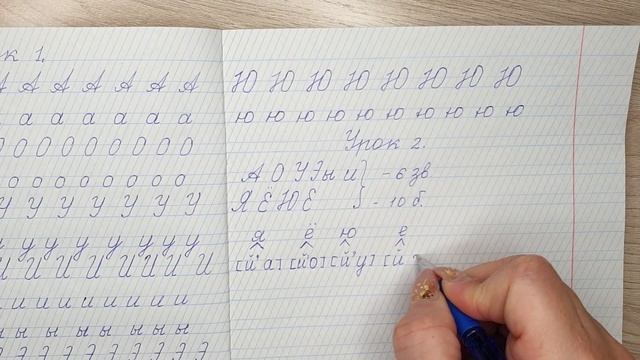 к 1.
А А А А А А А
а а а а а а
О О О О О О О О О
о о о о о о о о
У У У У У У У
у у у у у у у у
И И И И И И И И
и и и и и и и и
ы ы ы ы ы ы ы
Э Э Э Э Э Э Э Э
Ю Ю Ю Ю Ю Ю Ю Ю
ю ю ю ю ю ю ю ю ю ю
Урок 2.
А О У Э ы и } - 6 зв
Я Ё Ю Е } - 10 б.
я ё ю е
[й'а] [й'о] [й'у] [й'